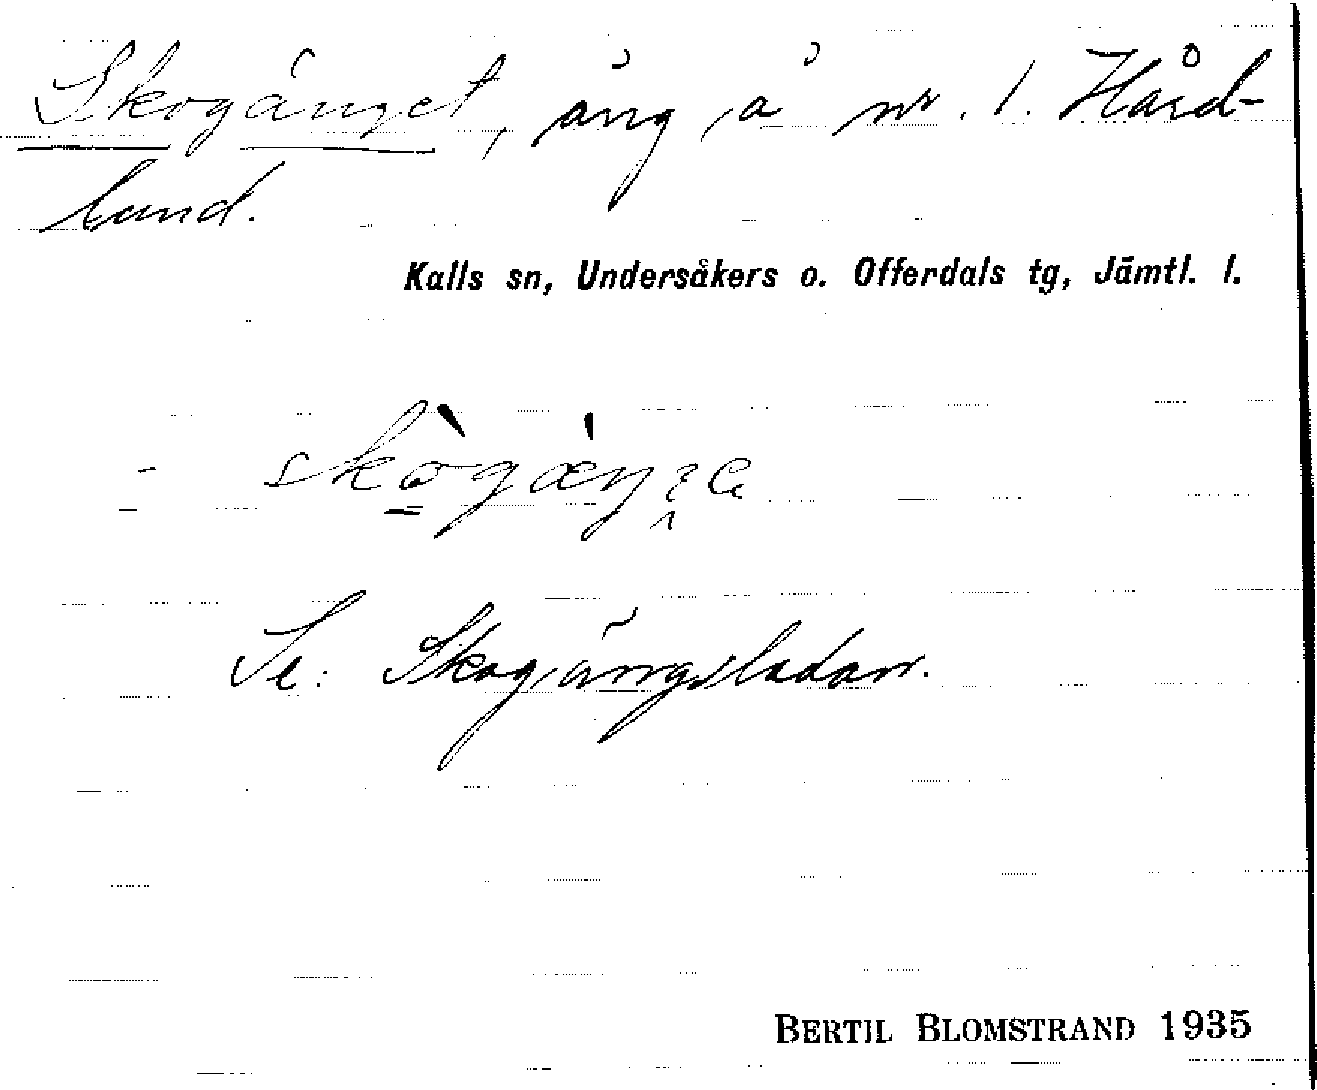 Skogänget, äng å nr. 1. Hård-
land.
Kalls sn, Undersåkers o. Offerdals tg, Jämtl. l.
Se: Skogängsladan.
BERTIL BLOMSTRAND 1935